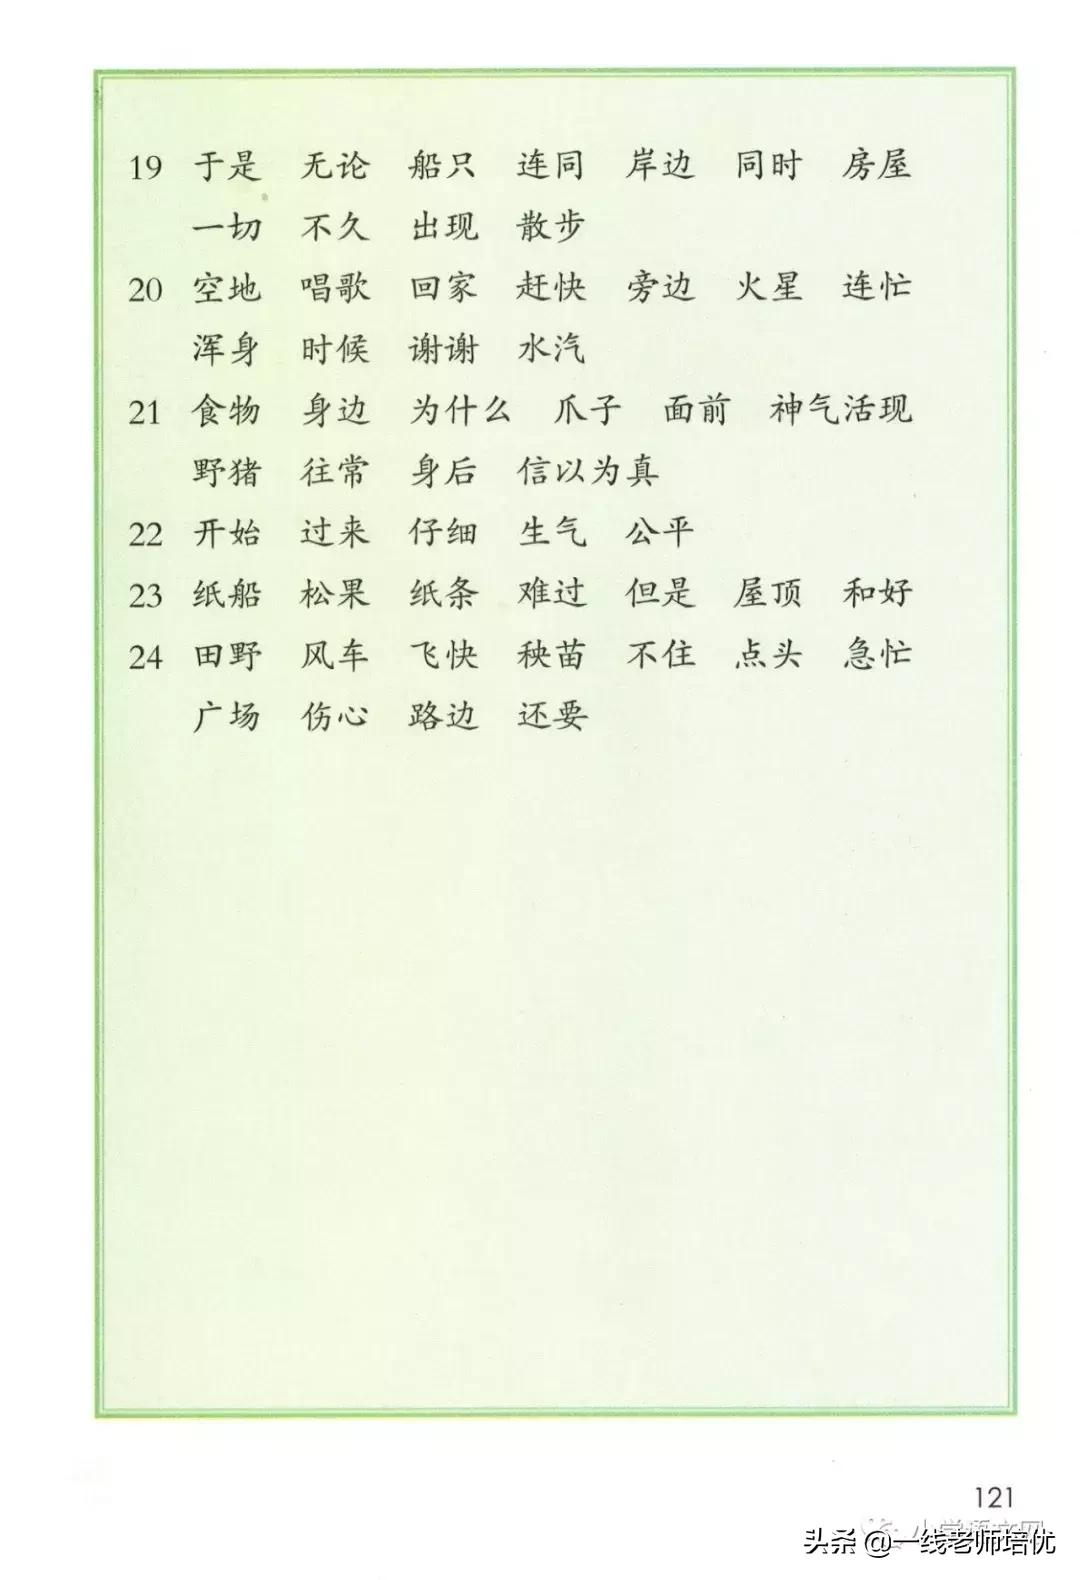 19 于是 无论 船只 连同 岸边 同时 房屋
一切 不久 出现 散步
20 空地 唱歌 回家 赶快 旁边 火星 连忙
浑身 时候 谢谢 水汽
21 食物 身边 为什么 爪子 面前 神气活现
野猪 往常 身后 信以为真
22 开始 过来 仔细 生气 公平
23 纸船 松果 纸条 难过 但是 屋顶 和好
24 田野 风车 飞快 秧苗 不住 点头 急忙
广场 伤心 路边 还要
121
小学语文网
头条 @一线老师培优